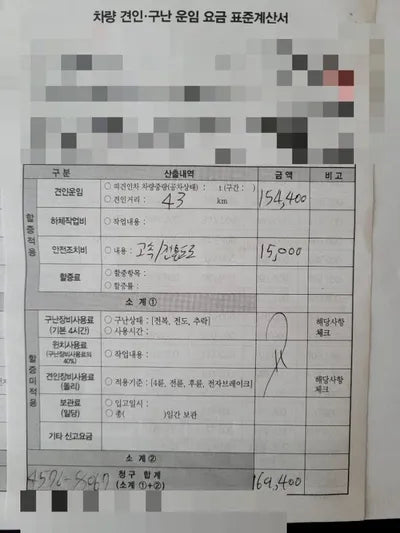 차량 견인·구난 운임 요금 표준계산서
구 분 산출내역 금 액 비 고
할증적용
견인운임 ○ 피견인차 차량중량(공차상태) : t (구간 : )
○ 견인거리 : 43 km 154,400
하체작업비 ○ 작업내용 :
안전조치비 ○ 내용 : 고속/전용도로 15,000
할증료 ○ 할증항목 :
○ 할증률 :
소 계 ①
할증미적용
구난장비사용료 (기본 4시간) ○ 구난상태 : [전복, 전도, 추락] 해당사항 체크
○ 사용시간 :
윈치사용료
(구난장비사용료의 40%) ○ 작업내용 :
견인장비사용료 (돌리) ○ 적용기준 : [4륜, 전륜, 후륜, 전자브레이크] 해당사항 체크
보관료 (일당) ○ 입고일시 :
○ 총( )일간 보관
기타 신고요금
소 계 ②
청구 합계
(소계 ①+②) 169,400